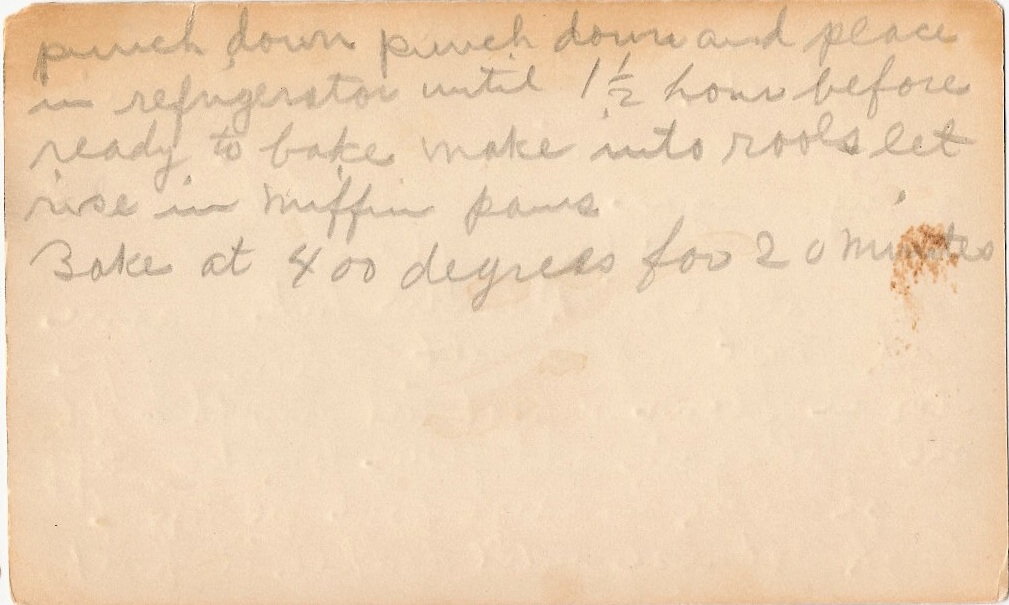 punch down punch down and place
in refrigerator until 1½ hour before
ready to bake make into rools let
rise in muffin pans.
Bake at 400 degress for 20 minutes